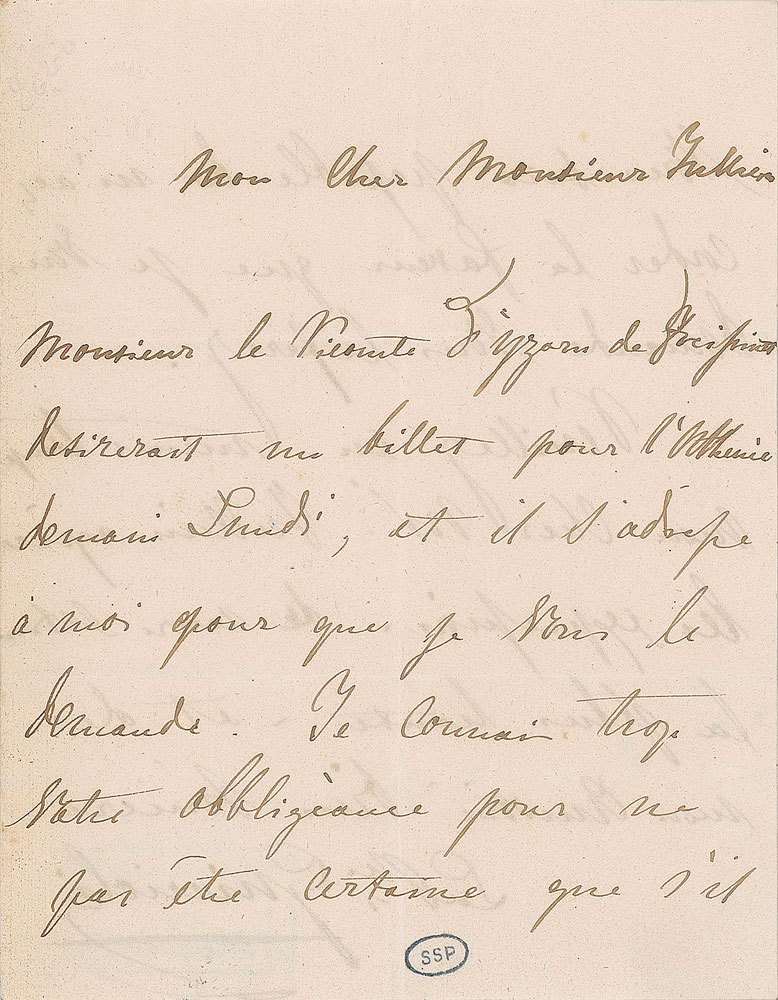 Mon Cher Monsieur Jullien
Monsieur le Vicomte d'yzarn de
desirerait un billet pour l'Athenée
demain Lundi, et il s'adresse
à moi pour que je vous le
demande. Je connais trop
votre obbligéance pour ne
pas être certaine que s'il
SSP